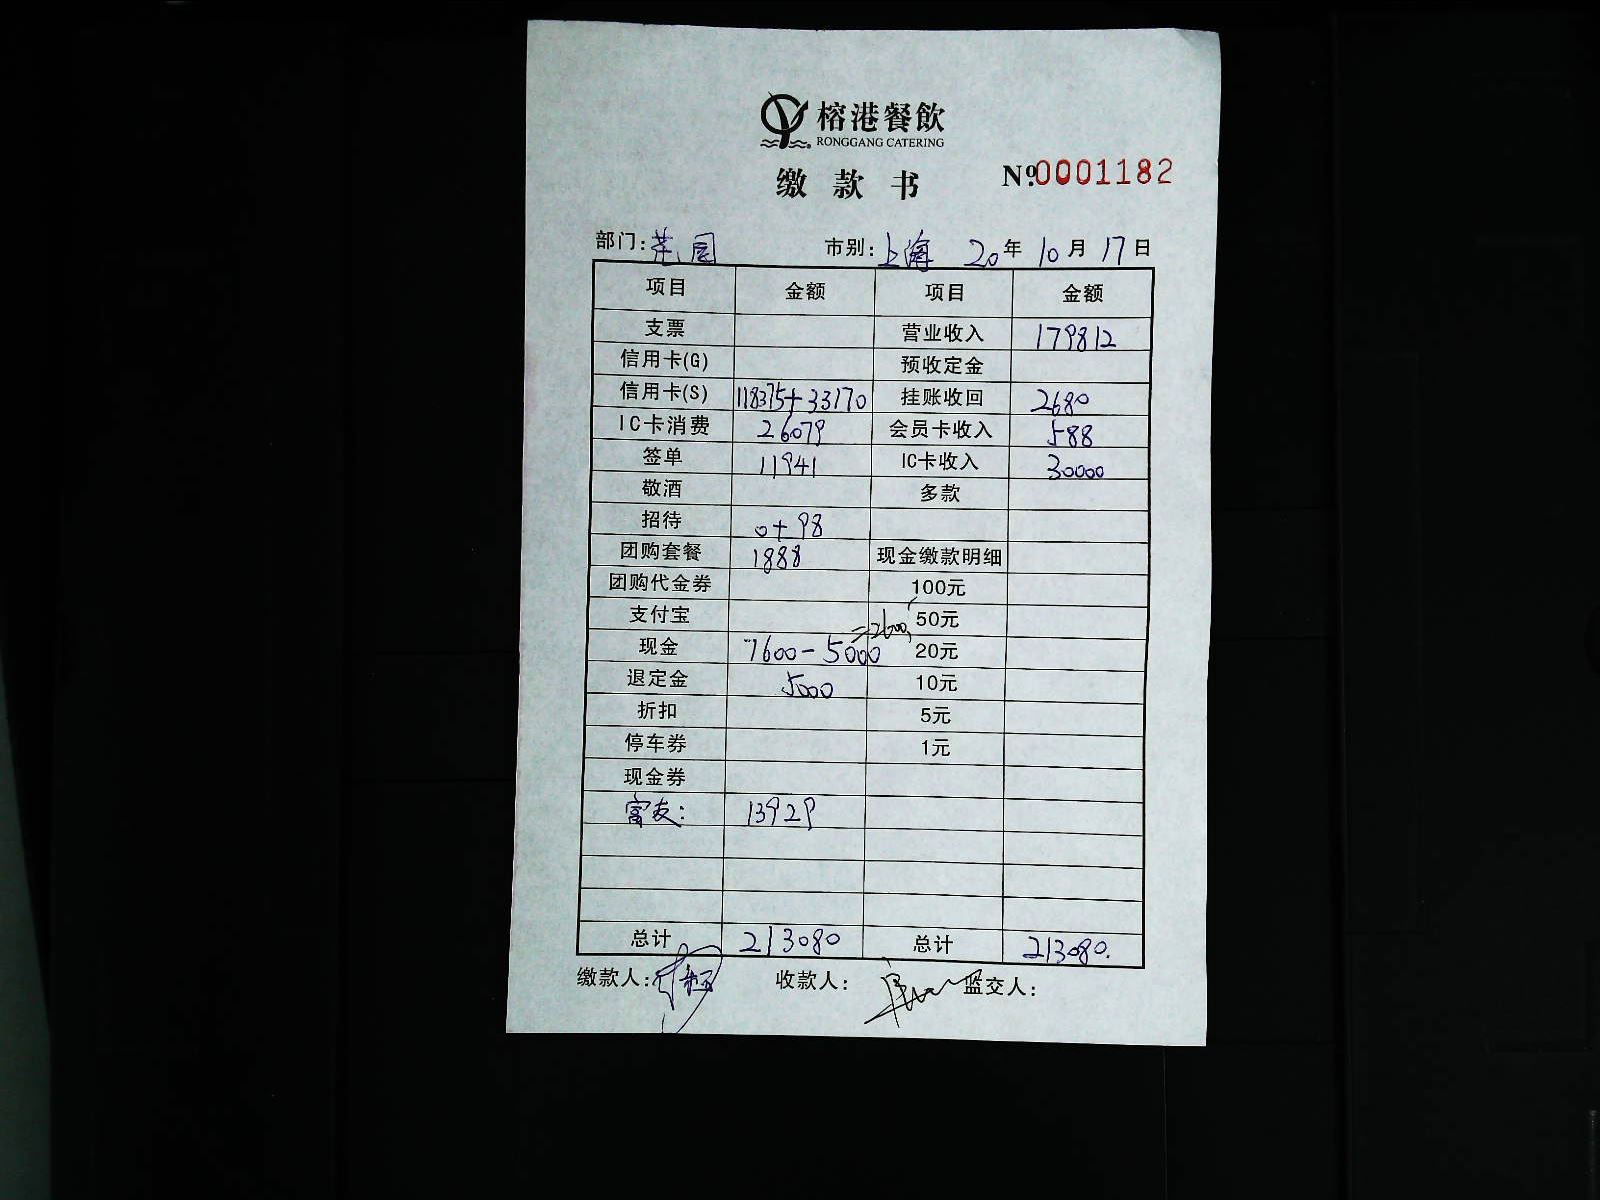 榕港餐飲
RONGGANG CATERING
缴款书 №0001182
部门: 市别:上海 20年10月17日
项目 金额 项目 金额
支票 营业收入 179812
信用卡(G) 预收定金
信用卡(S) 118375+33170 挂账收回 2680
IC卡消费 26079 会员卡收入 588
签单 11941 IC卡收入 30000
敬酒 多款
招待 0+98
团购套餐 1888 现金缴款明细
团购代金券 100元
支付宝 50元
现金 7600-5000=2600 20元
退定金 5000 10元
折扣 5元
停车券 1元
现金券
富友: 13929
总计 213080 总计 213080.
缴款人: 收款人: 监交人: